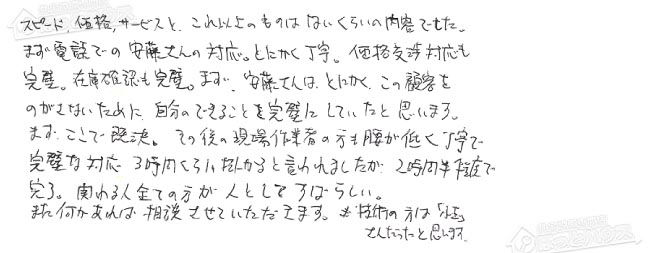 スピード、価格、サービスと、これ以上のものはないくらいの内容でした。
まず電話での安藤さんの対応。とにかく丁寧。価格交渉対応も
完璧。在庫確認も完璧。まず、安藤さんは、とにかく、この顧客を
のがさないために、自分のできることを完璧にしていたと思います。
まず、ここで即決。その後の現場作業者の方も腰が低く丁寧で
完璧な対応。3時間くらい掛かると言われましたが、2時間半程度で
完了。関わる人全ての方が人としてすばらしい。
また何かあれば相談させていただきます。※技術の方は「」
さんだったと思います。